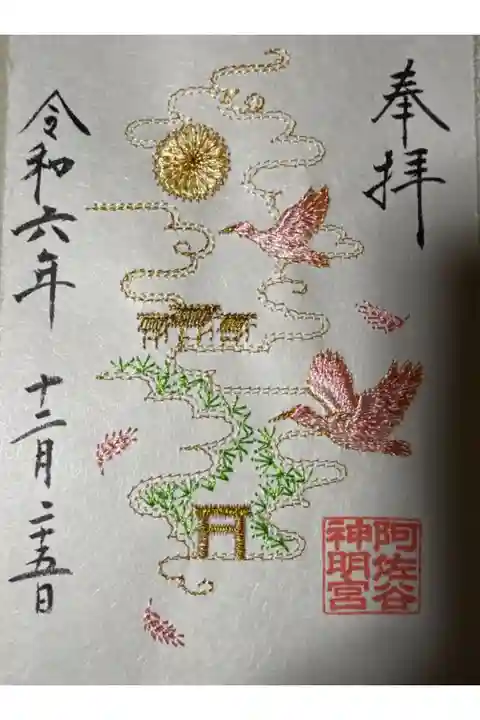 奉拝
阿佐谷
神明宮
令和六年 十二月二十五日